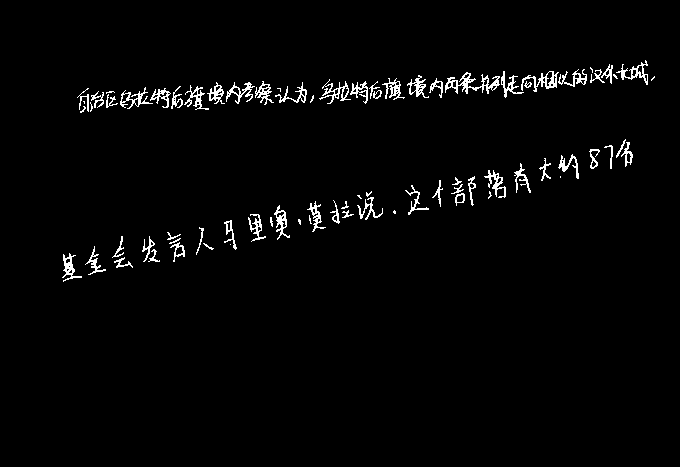 自治区乌拉特后旗境内考察认为,乌拉特后旗境内两条并列走向相似的汉外长城,
基金会发言人马里奥·莫拉说,这个部落有大约87名